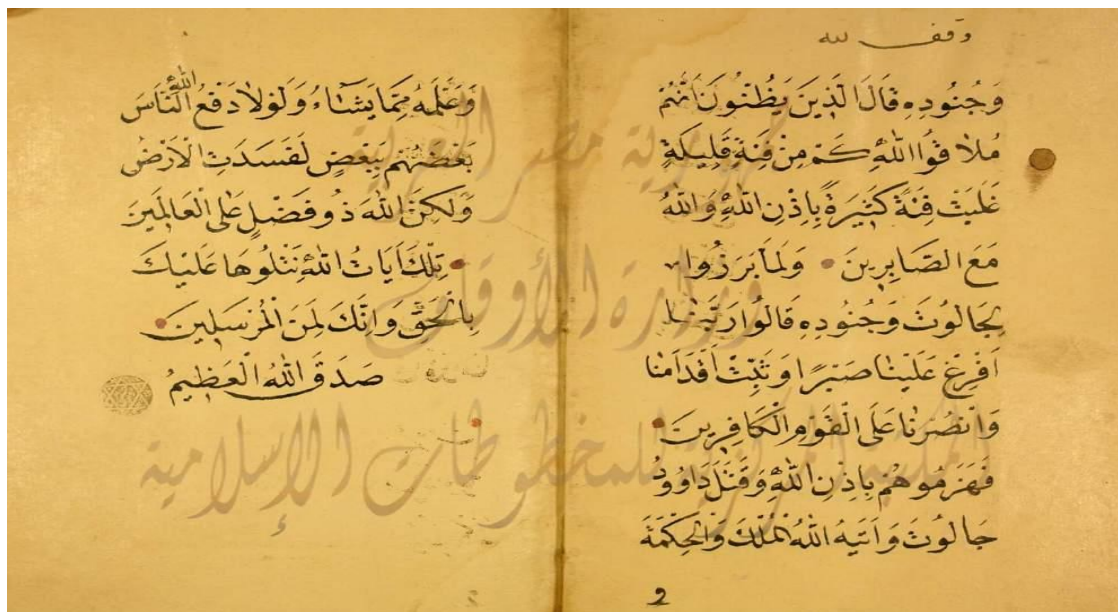 وقف لله
وَجُنُودِهِ قَالَ الَّذِينَ يَظُنُّونَ اَنَّهُمْ
مُلَاقُوا اللّٰهِ كَمْ مِنْ فِئَةٍ قَلِيلَةٍ
غَلَبَتْ فِئَةً كَثِيرَةً بِاِذْنِ اللّٰهِ وَاللّٰهُ
مَعَ الصَّابِرِينَ وَلَمَّا بَرَزُوا
لِجَالُوتَ وَجُنُودِهِ قَالُوا رَبَّنَا
اَفْرِغْ عَلَيْنَا صَبْرًا وَثَبِّتْ اَقْدَامَنَا
وَانْصُرْنَا عَلَى الْقَوْمِ الْكَافِرِينَ
فَهَزَمُوهُمْ بِاِذْنِ اللّٰهِ وَقَتَلَ دَاوُودُ
جَالُوتَ وَاٰتٰيهُ اللّٰهُ الْمُلْكَ وَالْحِكْمَةَ
2
وَعَلَّمَهُ مِمَّا يَشَاءُ وَلَوْلَا دَفْعُ اللّٰهِ النَّاسَ
بَعْضَهُمْ بِبَعْضٍ لَفَسَدَتِ الْاَرْضُ
وَلٰكِنَّ اللّٰهَ ذُو فَضْلٍ عَلَى الْعَالَمِينَ
تِلْكَ اٰيَاتُ اللّٰهِ نَتْلُوهَا عَلَيْكَ
بِالْحَقِّ وَاِنَّكَ لَمِنَ الْمُرْسَلِينَ
صَدَقَ اللّٰهُ الْعَظِيمُ
جمهورية مصر العربية
وزارة الأوقاف
المكتبة المركزية للمخطوطات الإسلامية